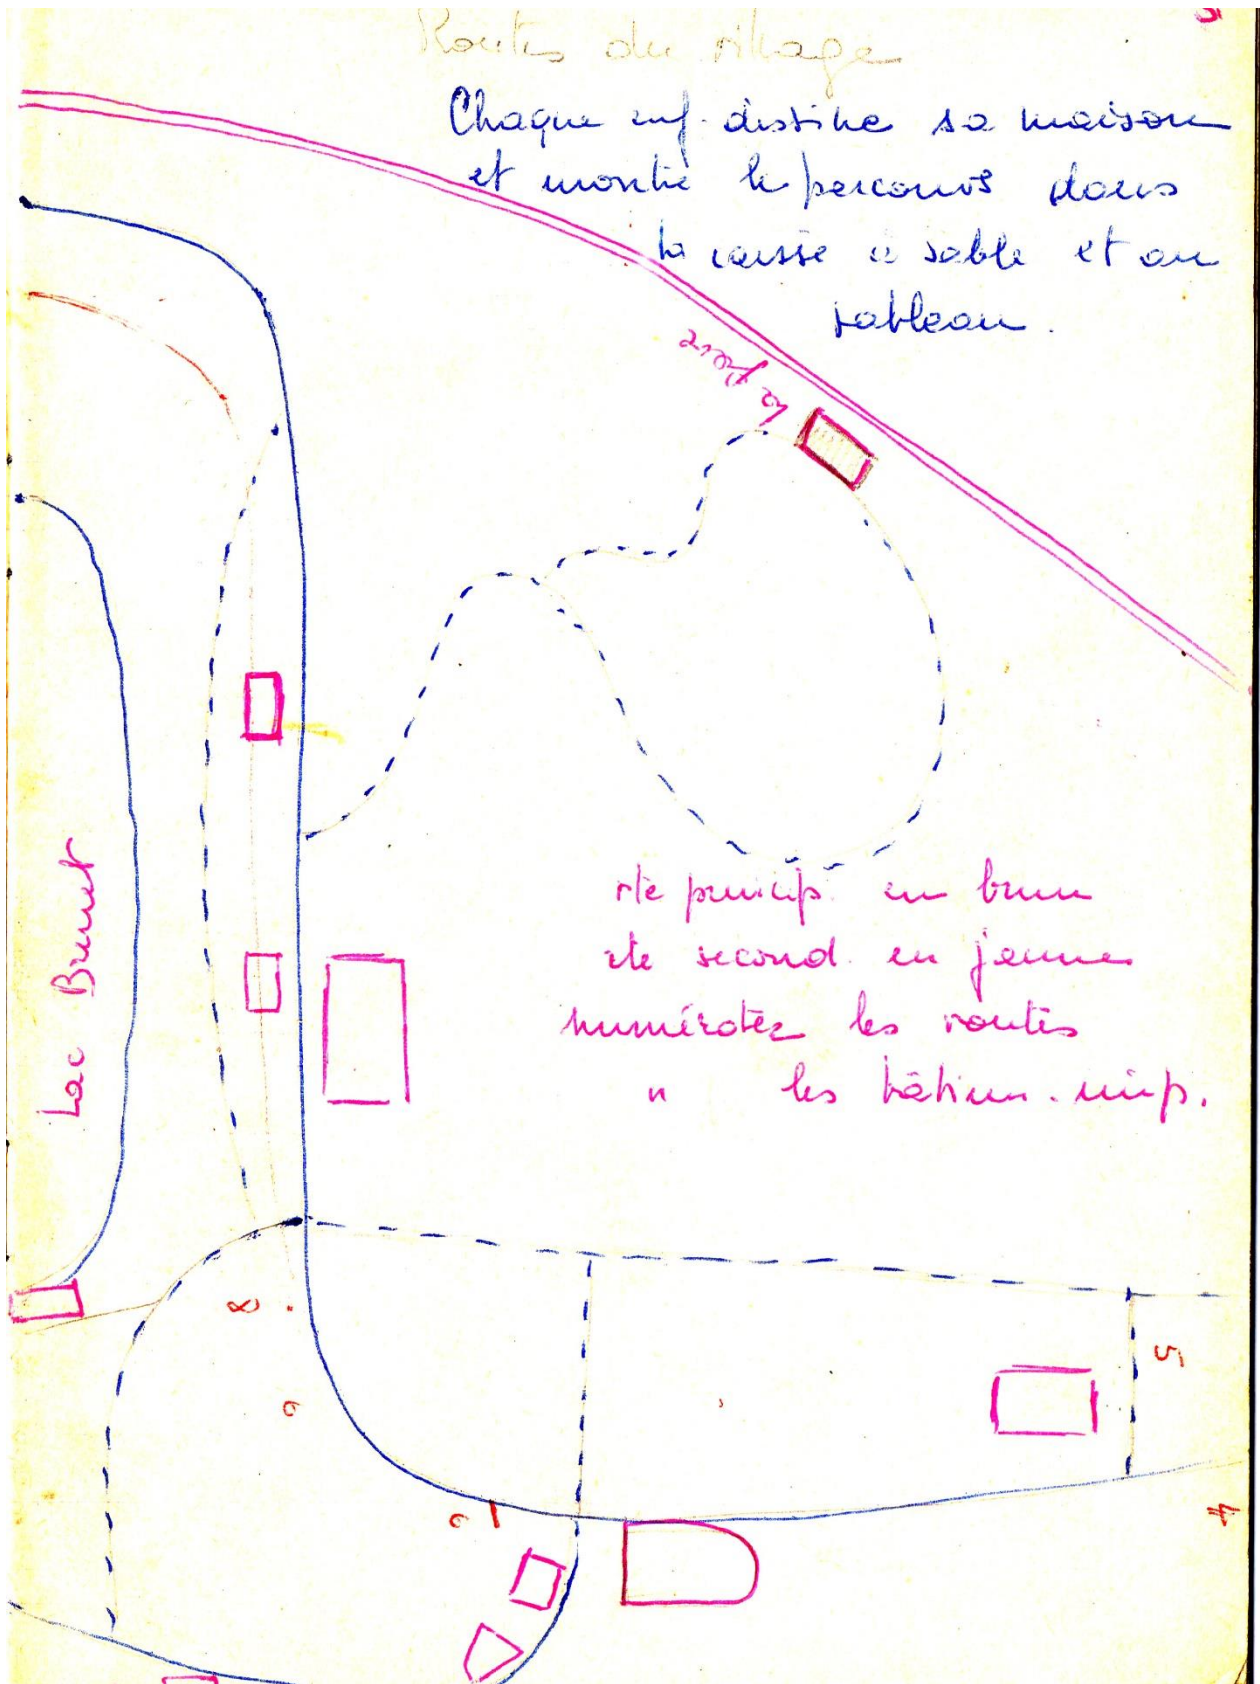 Routes du village
Chaque enf. dessine sa maison
et montre le parcours dans
la caisse à sable et au
tableau.
la gare
Lac Brenet
rte princip. en brun
rte second. en jaune
numérotez les routes
" les bâtim. imp.
8.
5
4